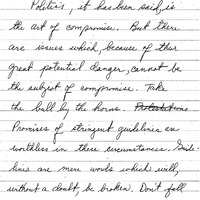 Politics, it has been said, is
the art of compromise. But there
are issues which, because of their
great potential danger, cannot be
the subject of compromise. Take
the bull by the horns.
Promises of stringent guidelines are
worthless in these circumstances. Guide-
lines are mere words which will,
without a doubt, be broken. Don't fall